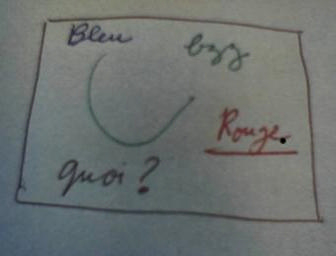 Bleu
bzz
Rouge.
quoi ?